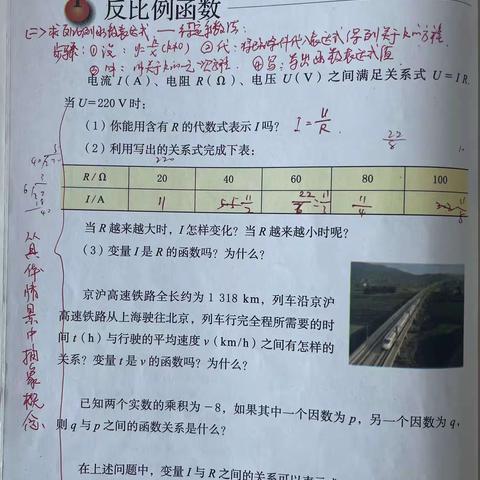 1 反比例函数
(一)求反比例函数表达式——待定系数法:
步骤: ①设: y=k/x (k≠0) ②代: 将已知条件代入表达式,得到关于k的方程
③解: 解关于k的一元一次方程. ④写: 写出函数表达式
电流 I(A)、电阻 R(Ω)、电压 U(V)之间满足关系式 U=IR.
当 U=220 V 时:
(1)你能用含有 R 的代数式表示 I 吗? I=U/R.
(2)利用写出的关系式完成下表:
22/8
220
R/Ω 20 40 60 80 100
I/A 11 11/2 22/6=11/3 11/4 11/5
当 R 越来越大时,I 怎样变化?当 R 越来越小时呢?
(3)变量 I 是 R 的函数吗?为什么?
从具体情景中抽象概念
京沪高速铁路全长约为 1 318 km,列车沿京沪
高速铁路从上海驶往北京,列车行完全程所需要的时
间 t(h)与行驶的平均速度 v(km/h)之间有怎样的
关系?变量 t 是 v 的函数吗?为什么?
已知两个实数的乘积为-8,如果其中一个因数为 p,另一个因数为 q,
则 q 与 p 之间的函数关系是什么?
在上述问题中,变量 I 与 R 之间的关系可以表示成